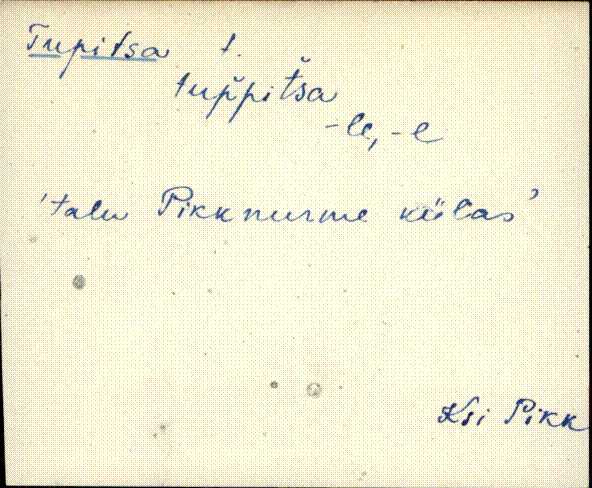 Tupitsa t.
tup̌pitša
-le, -e
'talu Pikknurme külas'
Ksi Pikk